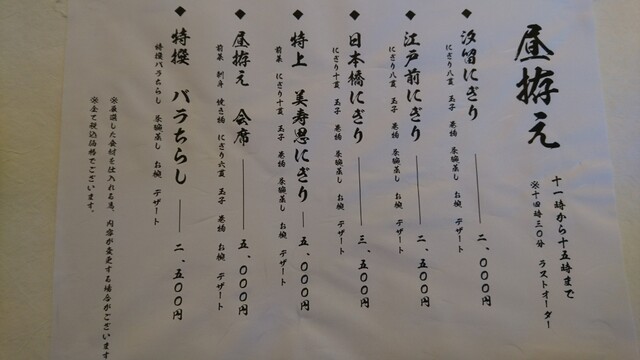 昼拵え
十一時から十五時まで
※十四時三〇分 ラストオーダー
◆ 汐留にぎり ― 二、〇〇〇円
にぎり八貫 玉子 巻物 茶碗蒸し お椀 デザート
◆ 江戸前にぎり ― 二、五〇〇円
にぎり八貫 玉子 巻物 茶碗蒸し お椀 デザート
◆ 日本橋にぎり ― 三、五〇〇円
にぎり十貫 玉子 巻物 茶碗蒸し お椀 デザート
◆ 特上 美寿思にぎり ― 五、〇〇〇円
前菜 にぎり十貫 玉子 巻物 茶碗蒸し お椀 デザート
◆ 昼拵え 会席 ― 五、〇〇〇円
前菜 刺身 焼き物 にぎり六貫 玉子 巻物 お椀 デザート
◆ 特撰 バラちらし ― 二、五〇〇円
特撰バラちらし 茶碗蒸し お椀 デザート
※厳選した食材を仕入れる為、内容が変更する場合がございます
※全て税込価格でございます。